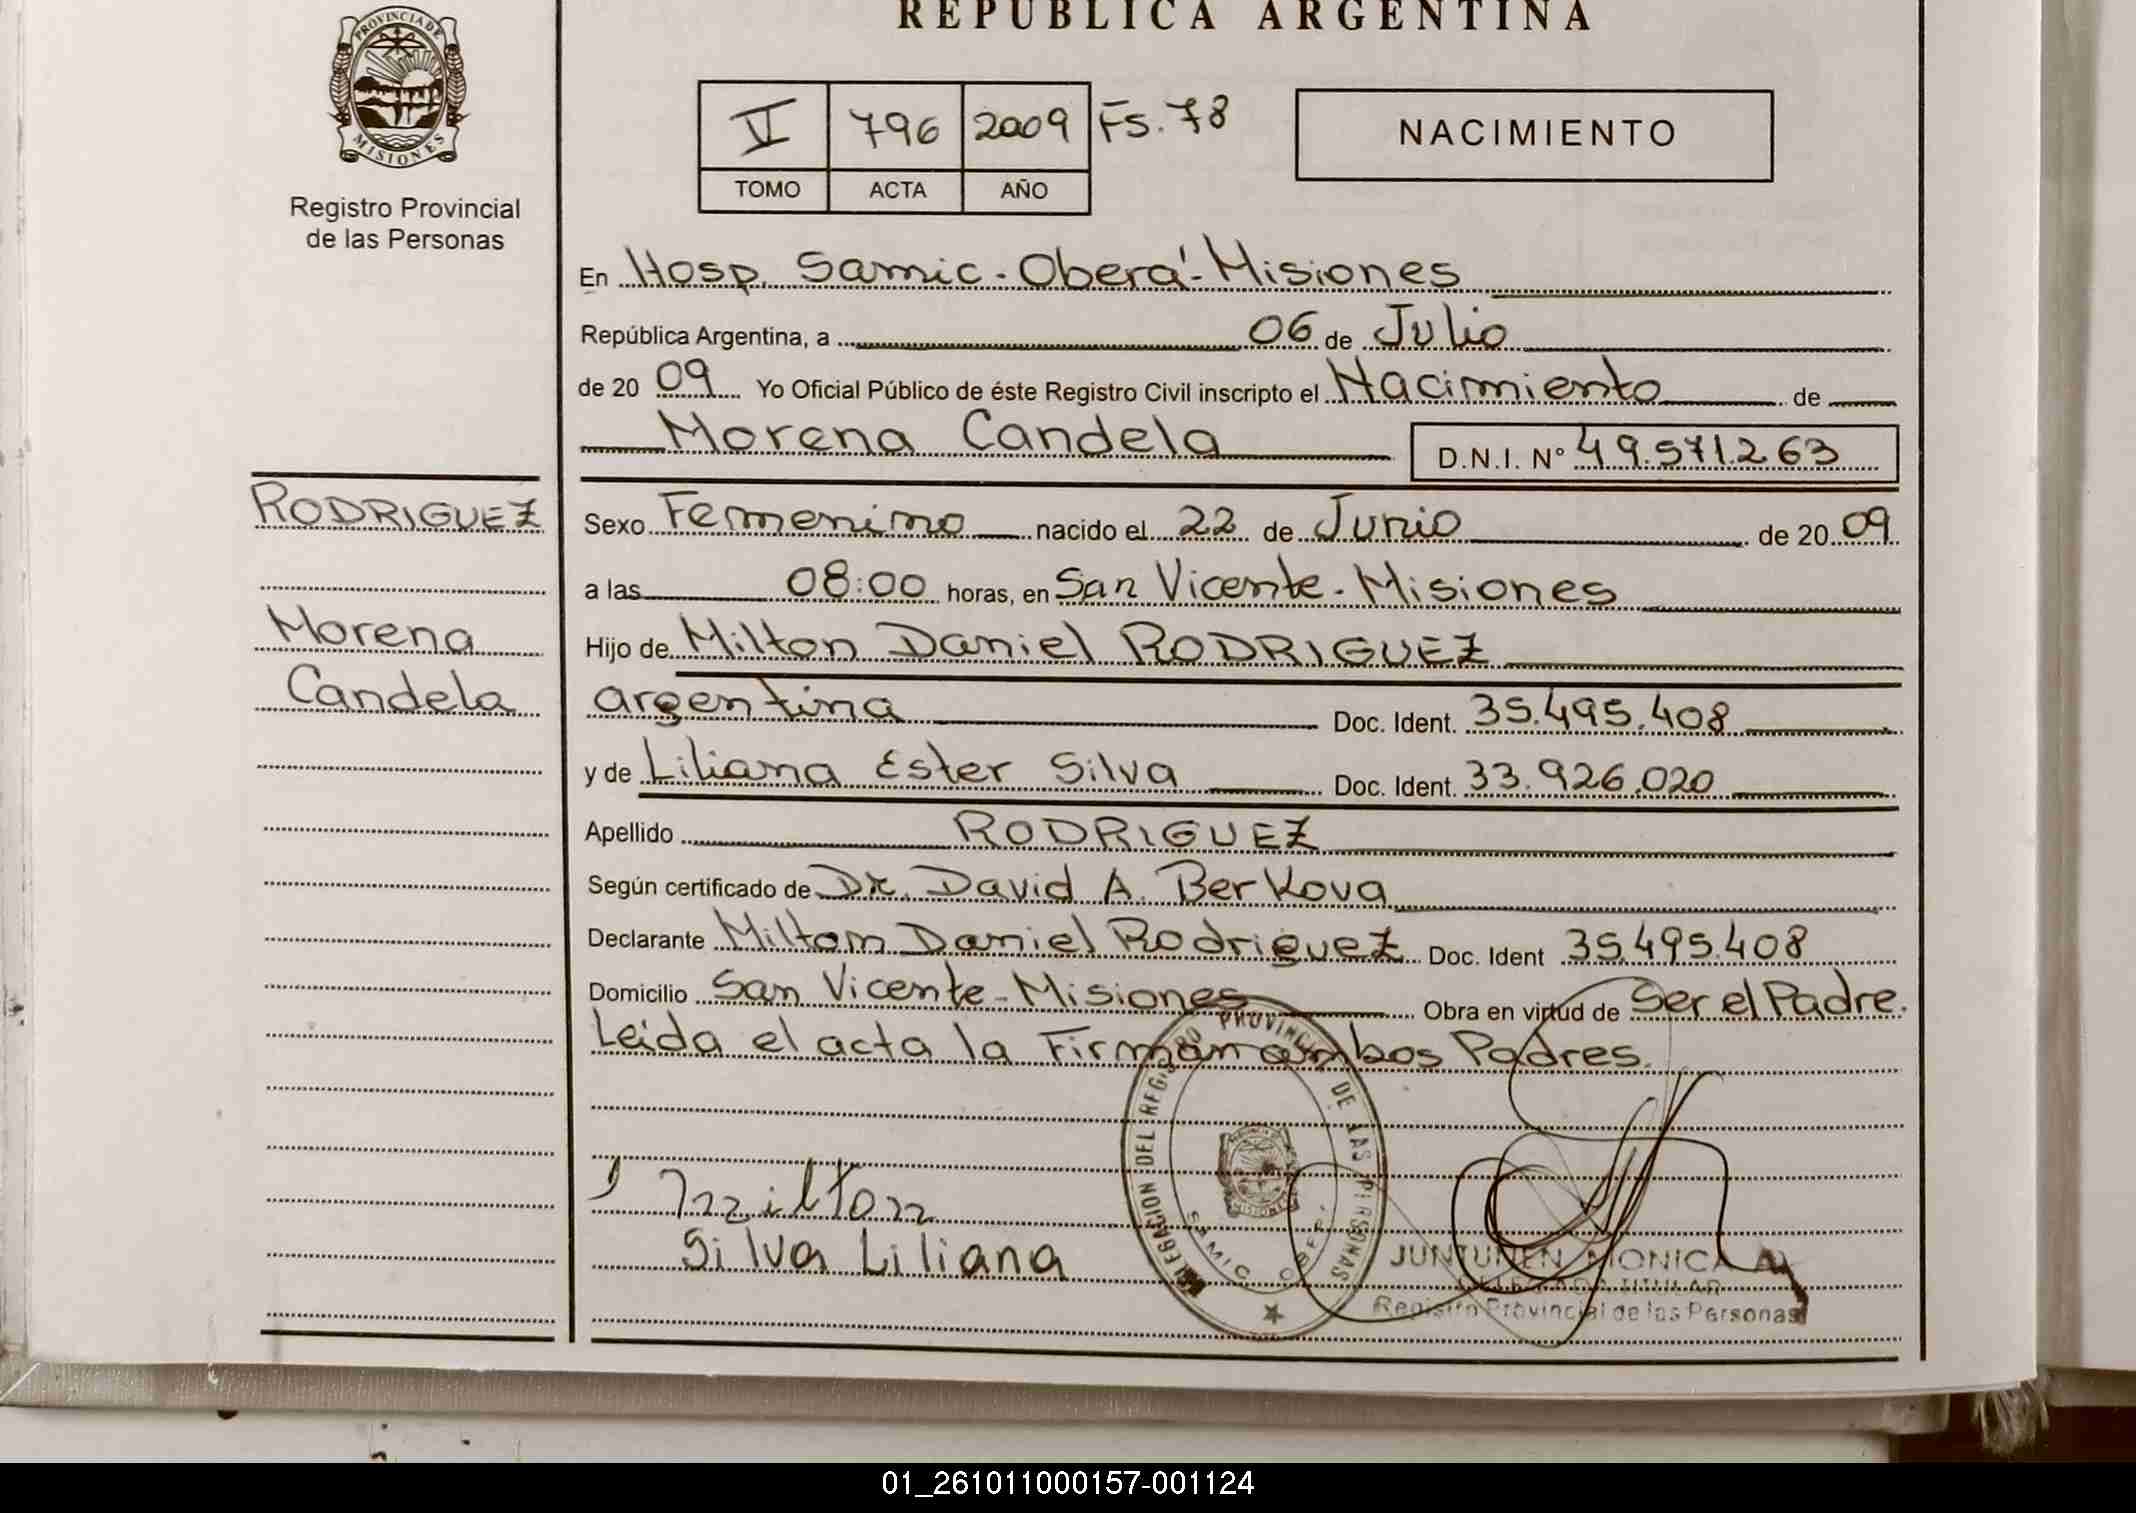 REPUBLICA ARGENTINA
PROVINCIA DE
MISIONES
Registro Provincial
de las Personas
VI 796 2009 Fs. 78
TOMO ACTA AÑO
NACIMIENTO
En Hosp. Samic - Oberá - Misiones
República Argentina, a 06 de Julio
de 20 09 Yo Oficial Público de éste Registro Civil inscripto el Nacimiento de
Morena Candela D.N.I. N° 49.571.263
RODRIGUEZ
Morena
Candela
Sexo Femenino nacido el 22 de Junio de 20 09
a las 08:00 horas, en San Vicente - Misiones
Hijo de Milton Daniel RODRIGUEZ
argentina Doc. Ident. 35.495.408
y de Liliana Ester Silva Doc. Ident. 33.926.020
Apellido RODRIGUEZ
Según certificado de Dr. David A. Berkova
Declarante Milton Daniel Rodriguez Doc. Ident 35.495.408
Domicilio San Vicente - Misiones Obra en virtud de Ser el Padre.
Leida el acta la Firman ambos Padres.
DELEGACION DEL REGISTRO PROVINCIAL DE LAS PERSONAS
MISIONES
SAMIC OBERA
Milton
Silva Liliana
JUNTUNEN MONICA
DELEGADA TITULAR
Registro Provincial de las Personas
01_261011000157-001124